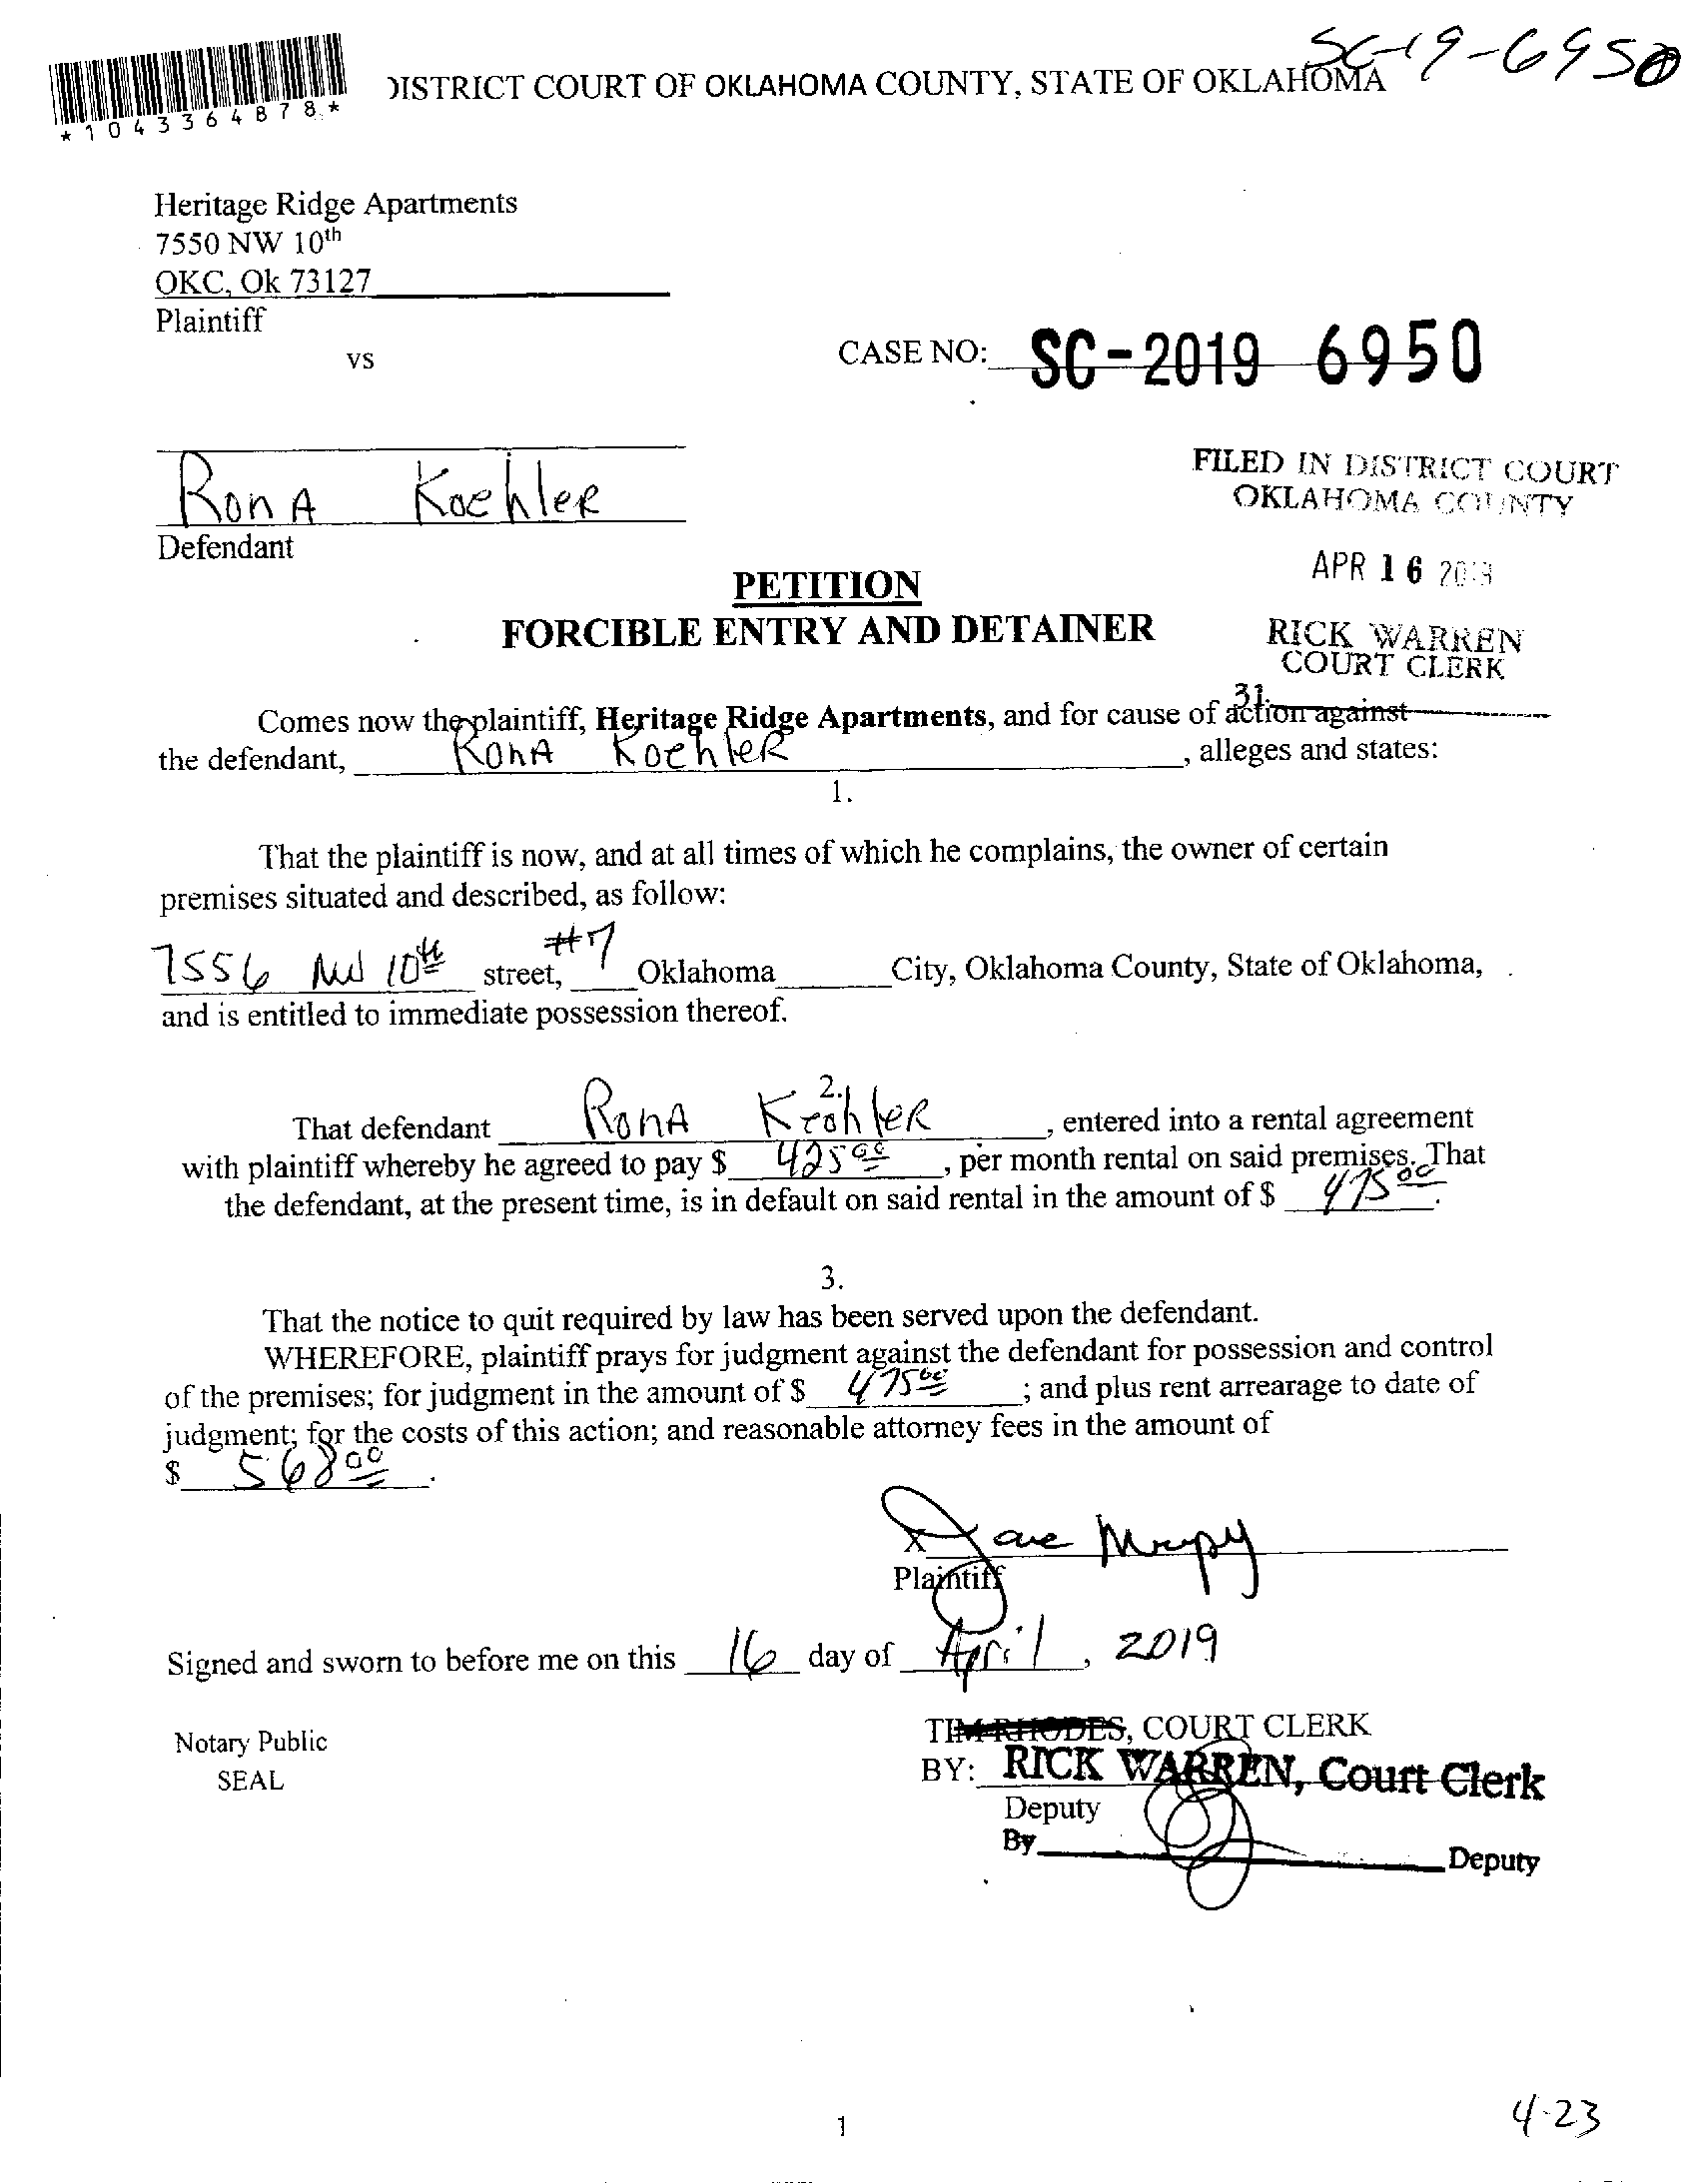 SC-19-6950
*1043364878*
DISTRICT COURT OF OKLAHOMA COUNTY, STATE OF OKLAHOMA
Heritage Ridge Apartments
7550 NW 10th
OKC, Ok 73127
Plaintiff
vs
CASE NO: SC-2019 6950
RonA Koehler
Defendant
FILED IN DISTRICT COURT
OKLAHOMA COUNTY
APR 16 2019
RICK WARREN
COURT CLERK
31.
PETITION
FORCIBLE ENTRY AND DETAINER
Comes now the plaintiff, Heritage Ridge Apartments, and for cause of action against
the defendant, RonA Koehler, alleges and states:
1.
That the plaintiff is now, and at all times of which he complains, the owner of certain
premises situated and described, as follow:
7556 NW 10th street, #7 Oklahoma City, Oklahoma County, State of Oklahoma,
and is entitled to immediate possession thereof.
2.
That defendant RonA Koehler, entered into a rental agreement
with plaintiff whereby he agreed to pay $ 425.00, per month rental on said premises. That
the defendant, at the present time, is in default on said rental in the amount of $ 475.00.
3.
That the notice to quit required by law has been served upon the defendant.
WHEREFORE, plaintiff prays for judgment against the defendant for possession and control
of the premises; for judgment in the amount of $ 475.00; and plus rent arrearage to date of
judgment; for the costs of this action; and reasonable attorney fees in the amount of
$ 568.00.
X
Plaintiff
Signed and sworn to before me on this 16 day of April, 2019
Notary Public
SEAL
TIM RHODES, COURT CLERK
BY: RICK WARREN, Court Clerk
Deputy
By Deputy
1
4-23